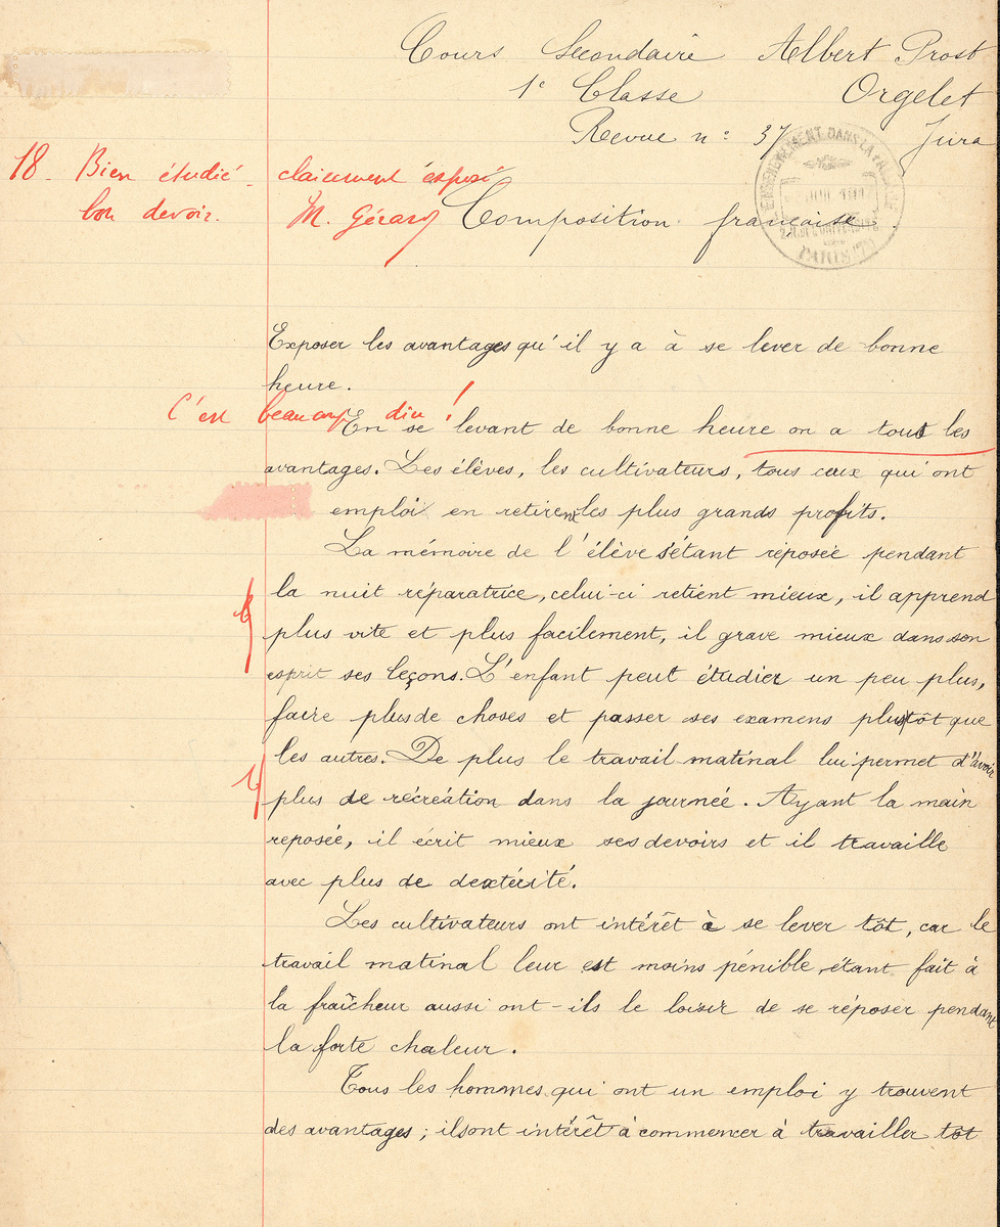 Cours Secondaire Albert Prost
1e Classe Orgelet
Revue n: 37 Jura
18. Bien étudié - clairement exposé
bon devoir. M. Gérard
Composition française.
ENSEIGNEMENT DANS LA FAMILLE
PARIS
Exposer les avantages qu'il y a à se lever de bonne
heure.
C'est beaucoup dire !
En se levant de bonne heure on a tous les
avantages. Les élèves, les cultivateurs, tous ceux qui ont
emploi en retirent les plus grands profits.
La mémoire de l'élève s'étant réposée pendant
la nuit réparatrice, celui-ci retient mieux, il apprend
plus vite et plus facilement, il grave mieux dans son
esprit ses leçons. L'enfant peut étudier un peu plus,
faire plus de choses et passer ses examens plus tôt que
les autres. De plus le travail matinal lui permet d'avoir
plus de récréation dans la journée. Ayant la main
reposée, il écrit mieux ses devoirs et il travaille
avec plus de dextérité.
Les cultivateurs ont intérêt à se lever tôt, car le
travail matinal leur est moins pénible, étant fait à
la fraîcheur aussi ont-ils le loisir de se réposer pendant
la forte chaleur.
Tous les hommes qui ont un emploi y trouvent
des avantages ; ils ont intérêt à commencer à travailler tôt